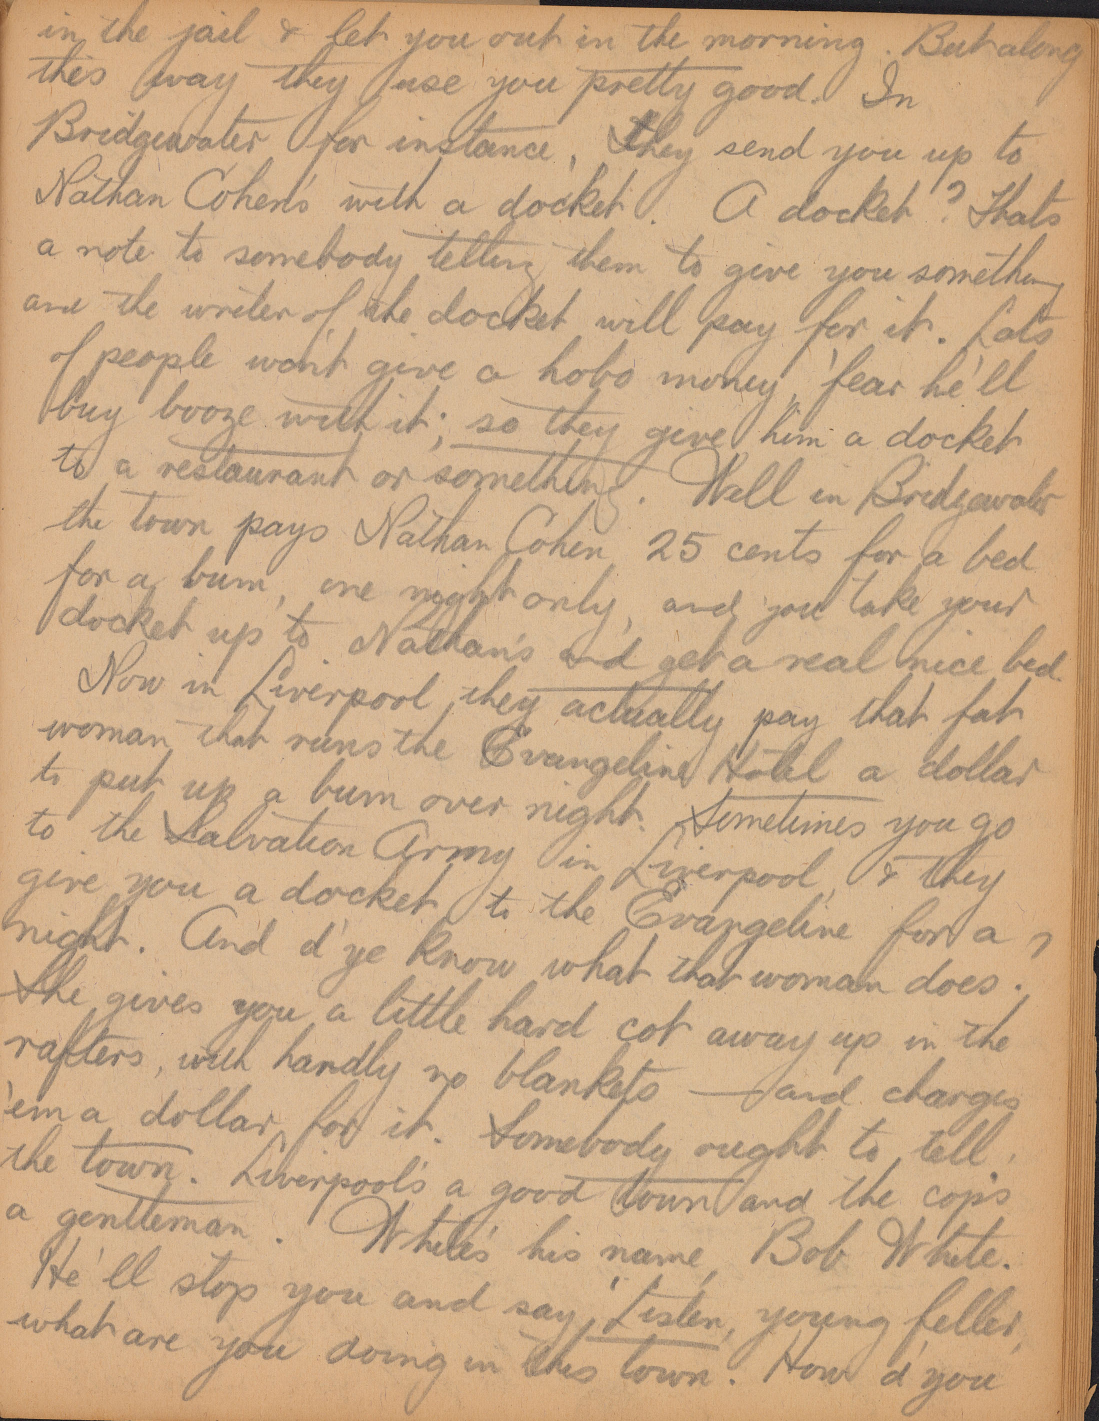 in the jail & let you out in the morning. But along
this way they use you pretty good. In
Bridgewater for instance, they send you up to
Nathan Cohen's with a docket. A docket? Thats
a note to somebody telling them to give you something
and the writer of the docket will pay for it. Lots
of people won't give a hobo money, 'fear he'll
buy booze with it; so they give him a docket
to a restaurant or something. Well in Bridgewater
the town pays Nathan Cohen 25 cents for a bed
for a bum, one night only, and you take your
docket up to Nathan's and get a real nice bed.
Now in Liverpool they actually pay that fat
woman that runs the Evangeline Hotel a dollar
to put up a bum over night. Sometimes you go
to the Salvation Army in Liverpool, & they
give you a docket to the Evangeline for a
night. And d'ye know what that woman does?
She gives you a little hard cot away up in the
rafters, with hardly no blankets — and charges
'em a dollar for it. Somebody ought to tell
the town. Liverpool's a good town and the cop's
a gentleman. White's his name, Bob White.
He'll stop you and say, 'Listen, young feller,
what are you doing in this town. How d'you